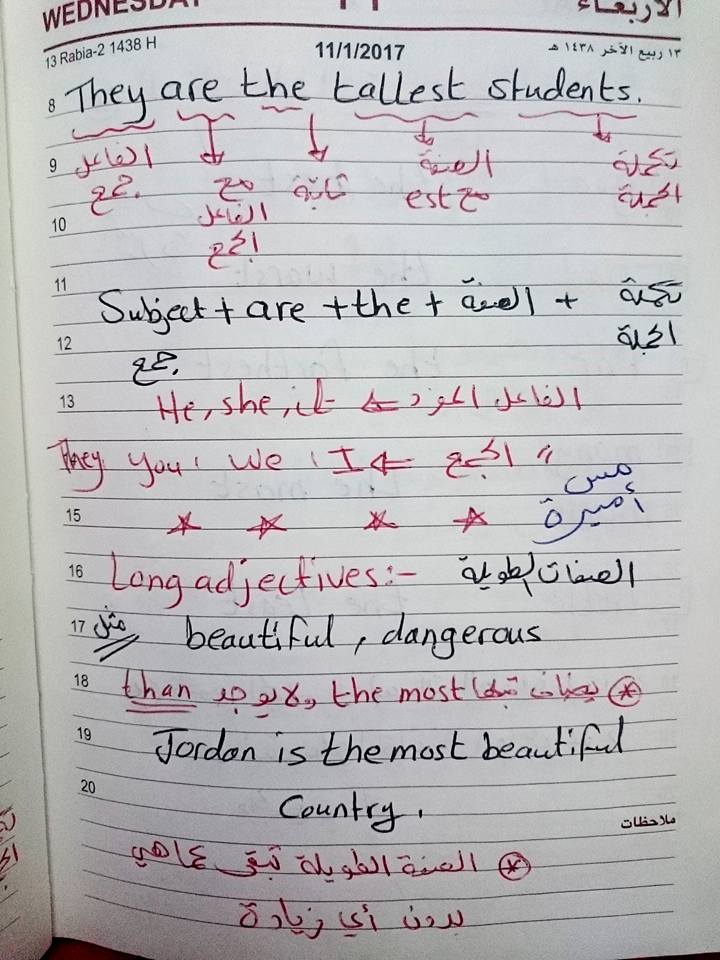 WEDNESDAY 11 الأربعاء
13 Rabia-2 1438 H 11/1/2017 ١٣ ربيع الآخر ١٤٣٨ هـ
8 They are the tallest students.
9 الفاعل مع ثابتة الصفة تكملة
جمع الفاعل مع est الجملة
10 الجمع
11 Subject + are + the + الصفة + تكملة
12 جمع الجملة
13 He, she, it ← الفاعل المفرد
They you، we، I ← الجمع "
مس
15 أميرة
16 Long adjectives:- الصفات الطويلة
17 مثل beautiful, dangerous
18 ⊛ يضاف قبلها the most ولا يوجد than
19 Jordan is the most beautiful
20 Country.
ملاحظات
⊛ الصفة الطويلة تبقى كما هي
بدون أي زيادة